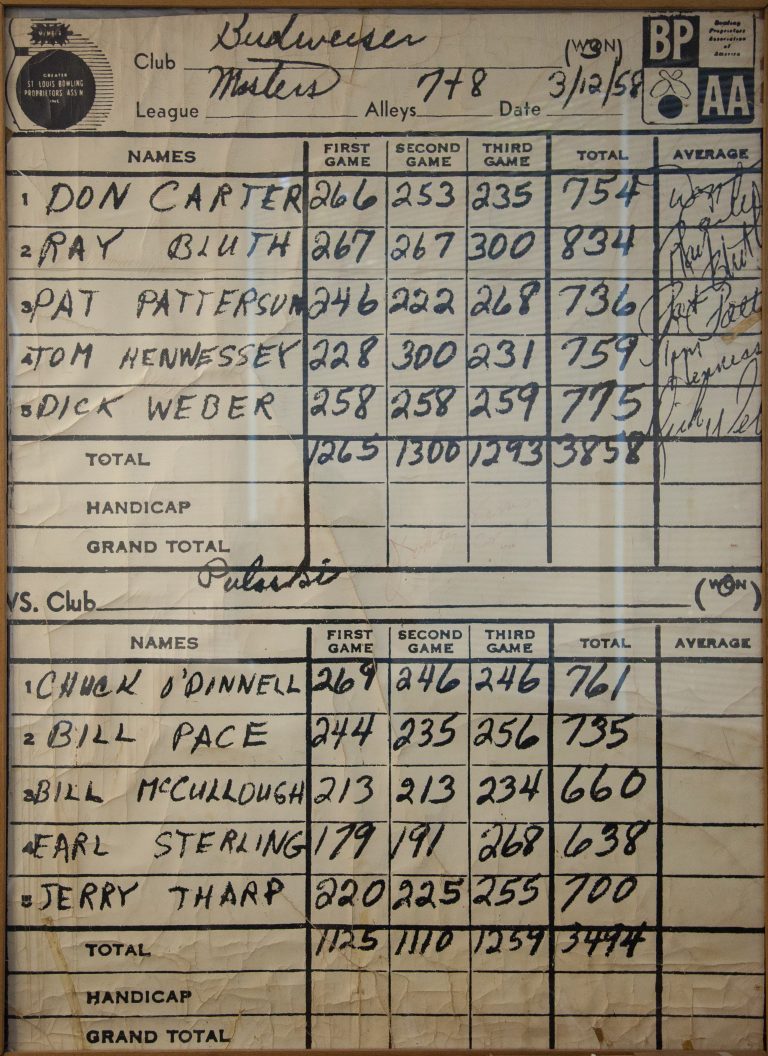 MEMBER
GREATER
ST LOUIS BOWLING
PROPRIETORS ASS'N
INC.
Club Budweiser (WON) 3
BP
AA
Bowling
Proprietors
Association
of
America
League Masters Alleys 7+8 Date 3/12/58
NAMES FIRST GAME SECOND GAME THIRD GAME TOTAL AVERAGE
1 DON CARTER 266 253 235 754
2 RAY BLUTH 267 267 300 834 Ray Bluth
3 PAT PATTERSON 246 222 268 736 Pat Patt
4 TOM HENNESSEY 228 300 231 759 Tom Henness
5 DICK WEBER 258 258 259 775 Dick Web
TOTAL 1265 1300 1293 3858
HANDICAP
GRAND TOTAL
VS. Club Pulaski (WON) 0
NAMES FIRST GAME SECOND GAME THIRD GAME TOTAL AVERAGE
1 CHUCK O'DINNELL 269 246 246 761
2 BILL PACE 244 235 256 735
3 BILL McCULLOUGH 213 213 234 660
4 EARL STERLING 179 191 268 638
5 JERRY THARP 220 225 255 700
TOTAL 1125 1110 1259 3494
HANDICAP
GRAND TOTAL